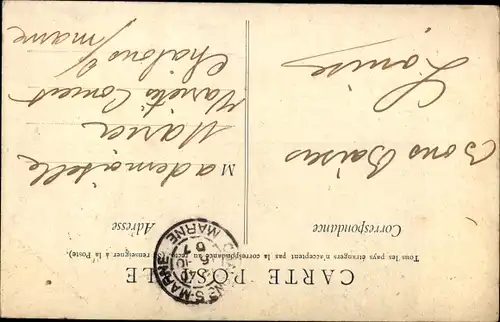 CARTE POSTALE
Tous les pays étrangers n'acceptent pas la correspondance au recto (se renseigner à la Poste).
Correspondance
Adresse
Bons Baisers
Louise
Mademoiselle
Maria
Variétés Concert
Châlons s/
marne
CHALONS-S-MARNE
MARNE